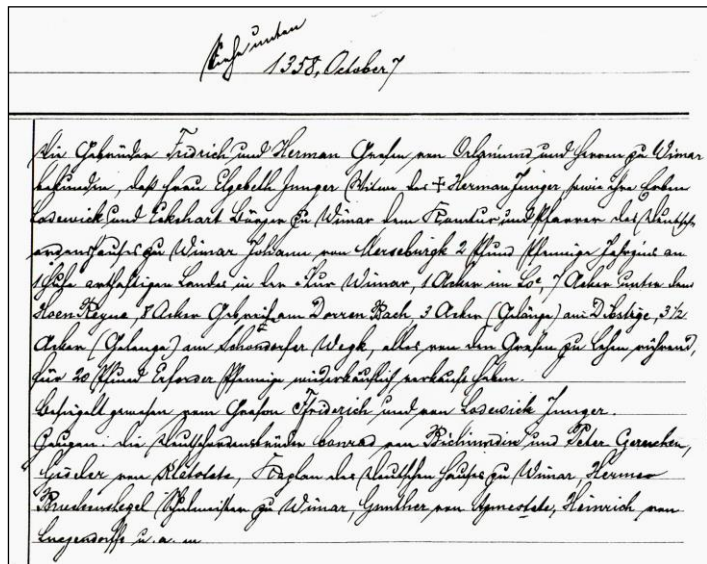 Siehe unten
1358, October 7
Die Gebrüder Fridrich und Herman Grafen von Orlamund und Herren zu Wimar
bekunden, daß Frau Elzebeth Junger Witwe des ✝ Herman Junger sowie ihre Erben
Lodewick und Eckehart Bürger zu Wimar dem Komtur und Pfarrer des Deutsch-
ordenshauses zu Wimar Johann von Merseburgk 2 Pfund Pfennige Jahrzins an
1 Hufe arthaftigen Landes in der Flur Wimar, 1 Acker im Lo, 7 Acker unter dem
Hoen Reyne, 8 Acker am Dorren Bach, 3 Acker (Gelänge) am 3 1/2
Acker (Gelange) am Schondorfer Wegk, alles von den Grafen zu Lehen rührend,
für 20 Pfund Erforder Pfennige wiederkäuflich verkauft haben.
Besiegelt gewesen vom Grafen Friderich und von Lodewick Junger.
Zeugen: die Deutschordensbrüder Conrad von und Peter
von Kaplan des Deutschen Hauses zu Wimar, Herman
Schulmeister zu Wimar, Gunther von Heinrich von
u. a. m